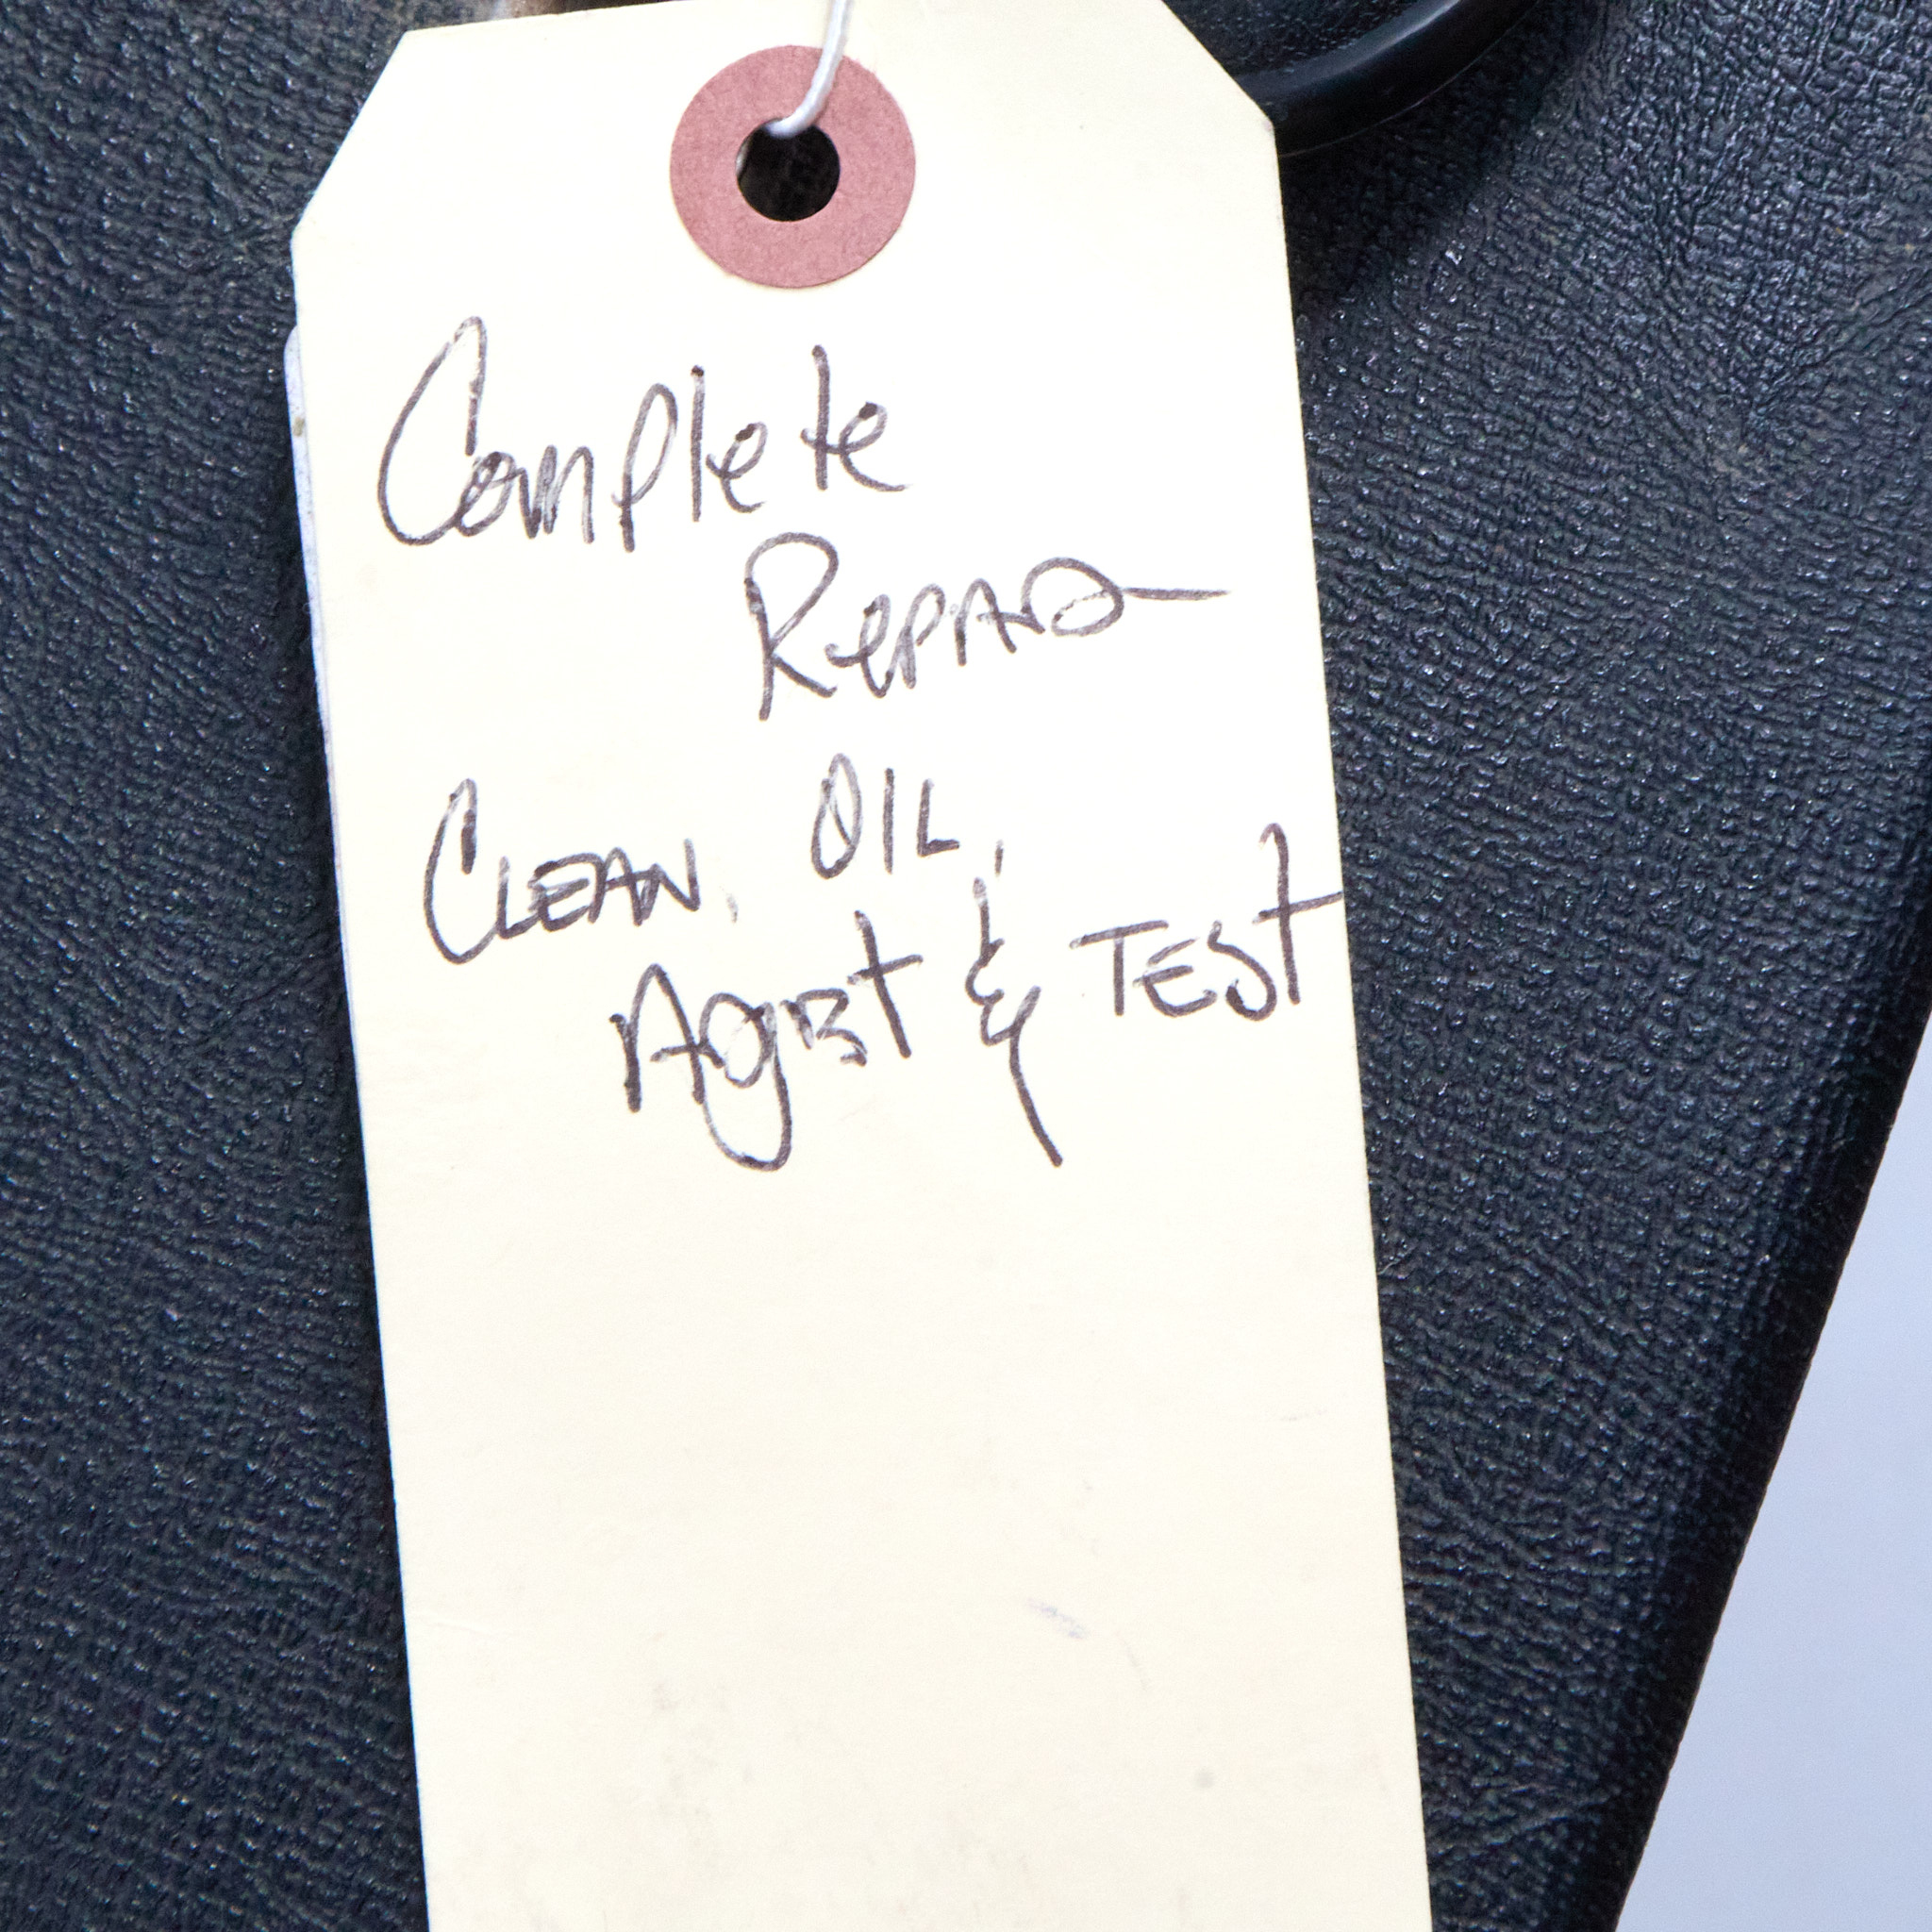 Complete
Repair
Clean, Oil,
Adjust & Test